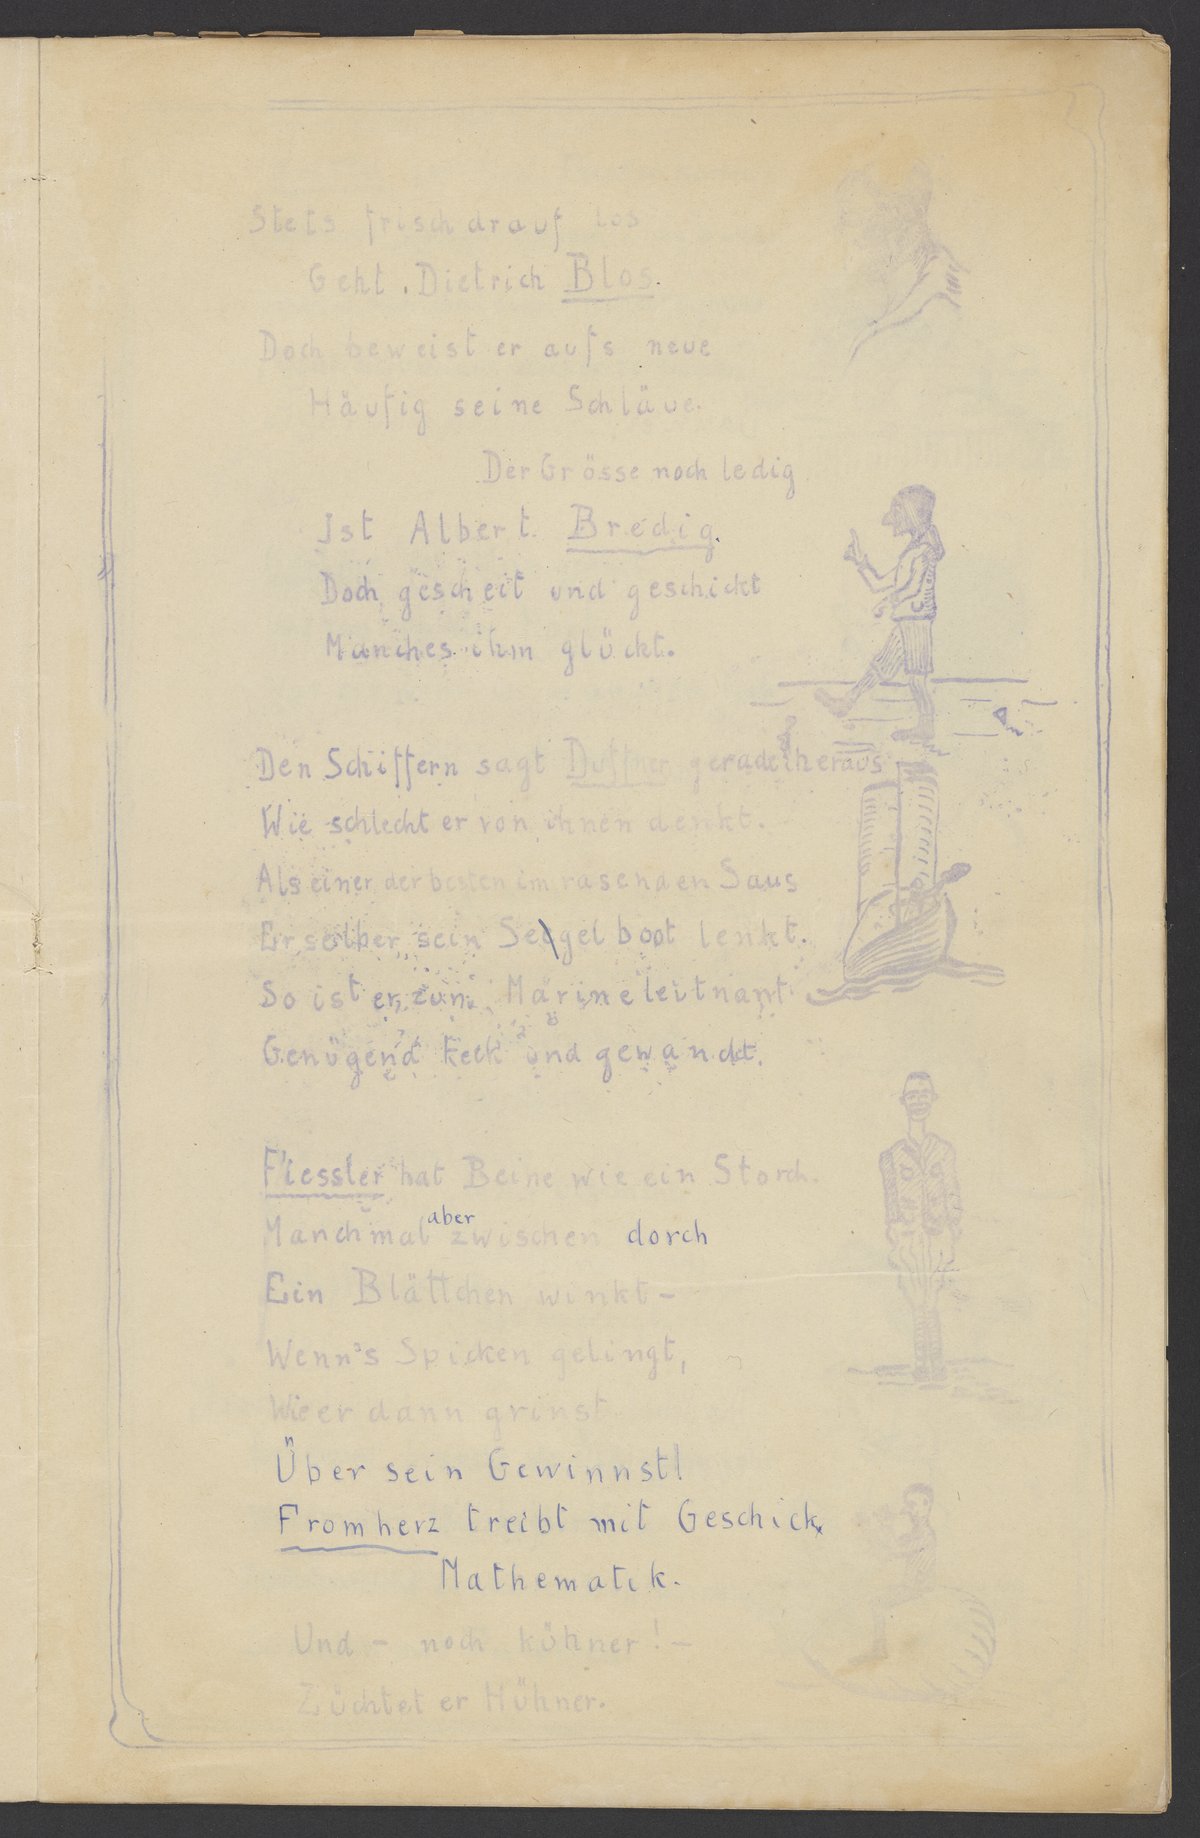 Stets frisch drauf los
Geht Dietrich Blos.
Doch beweist er aufs neue
Häufig seine Schläue.
Der Grösse noch ledig
Ist Albert Bredig.
Doch gescheit und geschickt
Manches ihm glückt.
Den Schiffern sagt Duffner geradeheraus
Wie schlecht er von ihnen denkt.
Als einer der besten im rasenden Saus
Er selber sein Segelboot lenkt.
So ist er zum Marineleitnant
Genügend keck und gewandt.
Fiessler hat Beine wie ein Storch.
Manchmal aber zwischen dorch
Ein Blättchen winkt –
Wenn's Spicken gelingt,
Wie er dann grinst
Über sein Gewinnst!
Fromherz treibt mit Geschick
Mathematik.
Und – noch kühner! –
Züchtet er Hühner.